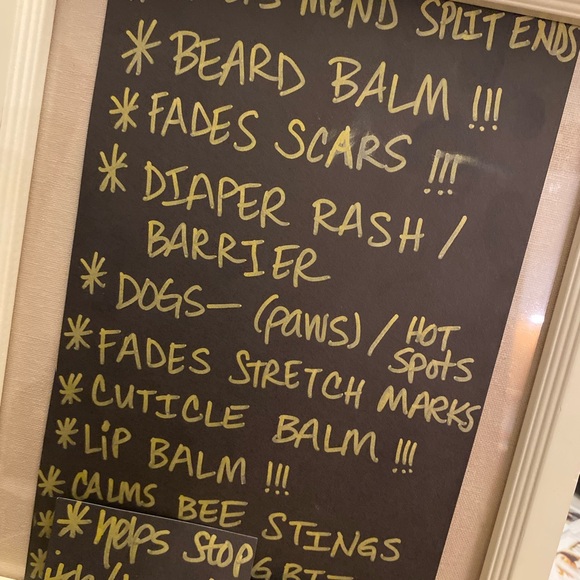 MEND SPLIT ENDS
* BEARD BALM !!!
* FADES SCARS !!!
* DIAPER RASH /
BARRIER
* DOGS— (PAWS) / HOT
SPOTS
* FADES STRETCH MARKS
* CUTICLE BALM !!!
* LIP BALM !!!
* CALMS BEE STINGS
* helps STOP